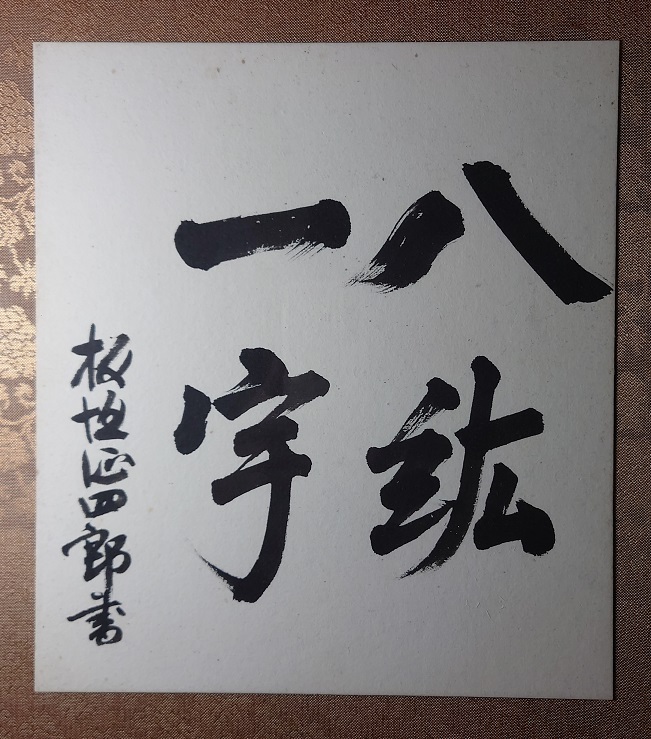 八紘
一宇
板垣征四郎書